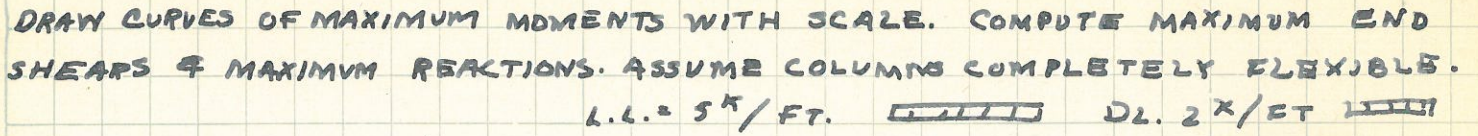 DRAW CURVES OF MAXIMUM MOMENTS WITH SCALE. COMPUTE MAXIMUM END
SHEARS & MAXIMUM REACTIONS. ASSUME COLUMNS COMPLETELY FLEXIBLE.
L.L. = 5ᴷ/FT. DL. 2ᴷ/FT